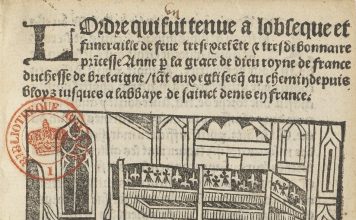 en
LOrdre qui fut tenue a lobseque et
funeraille de feue tresexcelēte ꝛ tresdebonnaire
prīcesse Anne p la grace de dieu royne de france
duchesse de bretaigne / tāt aux eglises q̄ au chemin depuis
bloys iusques a labbaye de sainct denis en france.
BIBLIOTHEQUE
I